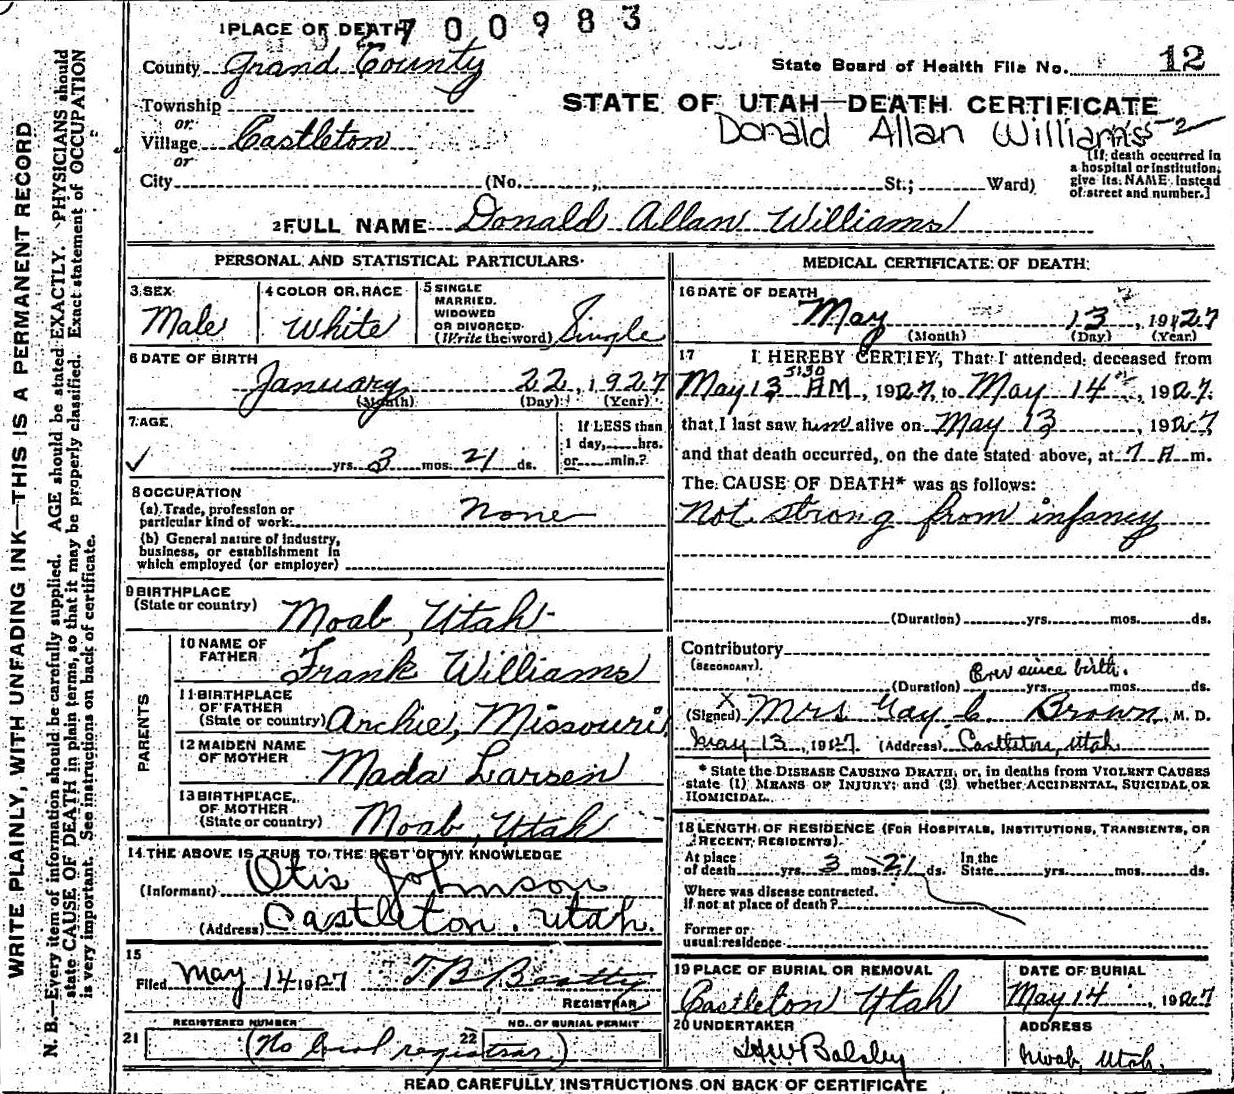 WRITE PLAINLY, WITH UNFADING INK—THIS IS A PERMANENT RECORD
N. B.—Every item of information should be carefully supplied. AGE should be stated EXACTLY. PHYSICIANS should
state CAUSE OF DEATH in plain terms, so that it may be properly classified. Exact statement of OCCUPATION
is very important. See instructions on back of certificate.
1 PLACE OF DEATH 700983
County Grand County
State Board of Health File No. 12
Township
or
Village Castleton
or
City (No. , St.; Ward)
STATE OF UTAH—DEATH CERTIFICATE
Donald Allan Williams
[If death occurred in
a hospital or institution,
give its NAME instead
of street and number.]
2 FULL NAME Donald Allan Williams
PERSONAL AND STATISTICAL PARTICULARS
3 SEX
Male
4 COLOR OR RACE
White
5 SINGLE
MARRIED
WIDOWED
OR DIVORCED
(Write the word) Single
6 DATE OF BIRTH
January 22, 1927
(Month) (Day) (Year)
7 AGE
yrs. 3 mos. 21 ds.
If LESS than
1 day, hrs.
or min.?
8 OCCUPATION
(a) Trade, profession or
particular kind of work None
(b) General nature of industry,
business, or establishment in
which employed (or employer)
9 BIRTHPLACE
(State or country) Moab, Utah
PARENTS
10 NAME OF
FATHER Frank Williams
11 BIRTHPLACE
OF FATHER
(State or country) Archie, Missouri
12 MAIDEN NAME
OF MOTHER Mada Larsen
13 BIRTHPLACE
OF MOTHER
(State or country) Moab, Utah
14 THE ABOVE IS TRUE TO THE BEST OF MY KNOWLEDGE
(Informant) Otis Johnson
(Address) Castleton, Utah.
15
Filed May 14 1927 J B Beatty
REGISTRAR
21 REGISTERED NUMBER 22 NO. OF BURIAL PERMIT
(No local registrar)
MEDICAL CERTIFICATE OF DEATH
16 DATE OF DEATH
May 13, 1927
(Month) (Day) (Year)
17 I HEREBY CERTIFY, That I attended deceased from
May 13 5:30 AM, 1927, to May 14, 1927,
that I last saw him alive on May 13, 1927,
and that death occurred, on the date stated above, at 7 A m.
The CAUSE OF DEATH* was as follows:
Not strong from infancy
(Duration) yrs. mos. ds.
Contributory
(SECONDARY)
Ever since birth.
(Duration) yrs. mos. ds.
(Signed) X Mrs Gay C. Brown, M. D.
May 13, 1927 (Address) Castleton, Utah
* State the DISEASE CAUSING DEATH, or, in deaths from VIOLENT CAUSES
state (1) MEANS OF INJURY; and (2) whether ACCIDENTAL, SUICIDAL OR
HOMICIDAL.
18 LENGTH OF RESIDENCE (FOR HOSPITALS, INSTITUTIONS, TRANSIENTS, OR
RECENT RESIDENTS).
At place
of death yrs. 3 mos. 21 ds. In the
State yrs. mos. ds.
Where was disease contracted.
If not at place of death?
Former or
usual residence
19 PLACE OF BURIAL OR REMOVAL
Castleton Utah
DATE OF BURIAL
May 14, 1927
20 UNDERTAKER
H W Balsley
ADDRESS
Moab, Utah.
READ CAREFULLY INSTRUCTIONS ON BACK OF CERTIFICATE